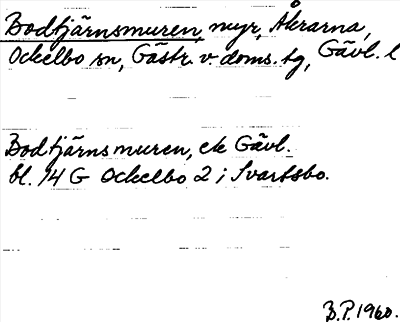 Bodtjärnsmuren, myr, Åkrarna,
Ockelbo sn, Gästr. v. doms. tg, Gävl. l
Bodtjärnsmuren, ek Gävl.
bl. 14 G Ockelbo 2 i Svartsbo.
B.P. 1960.